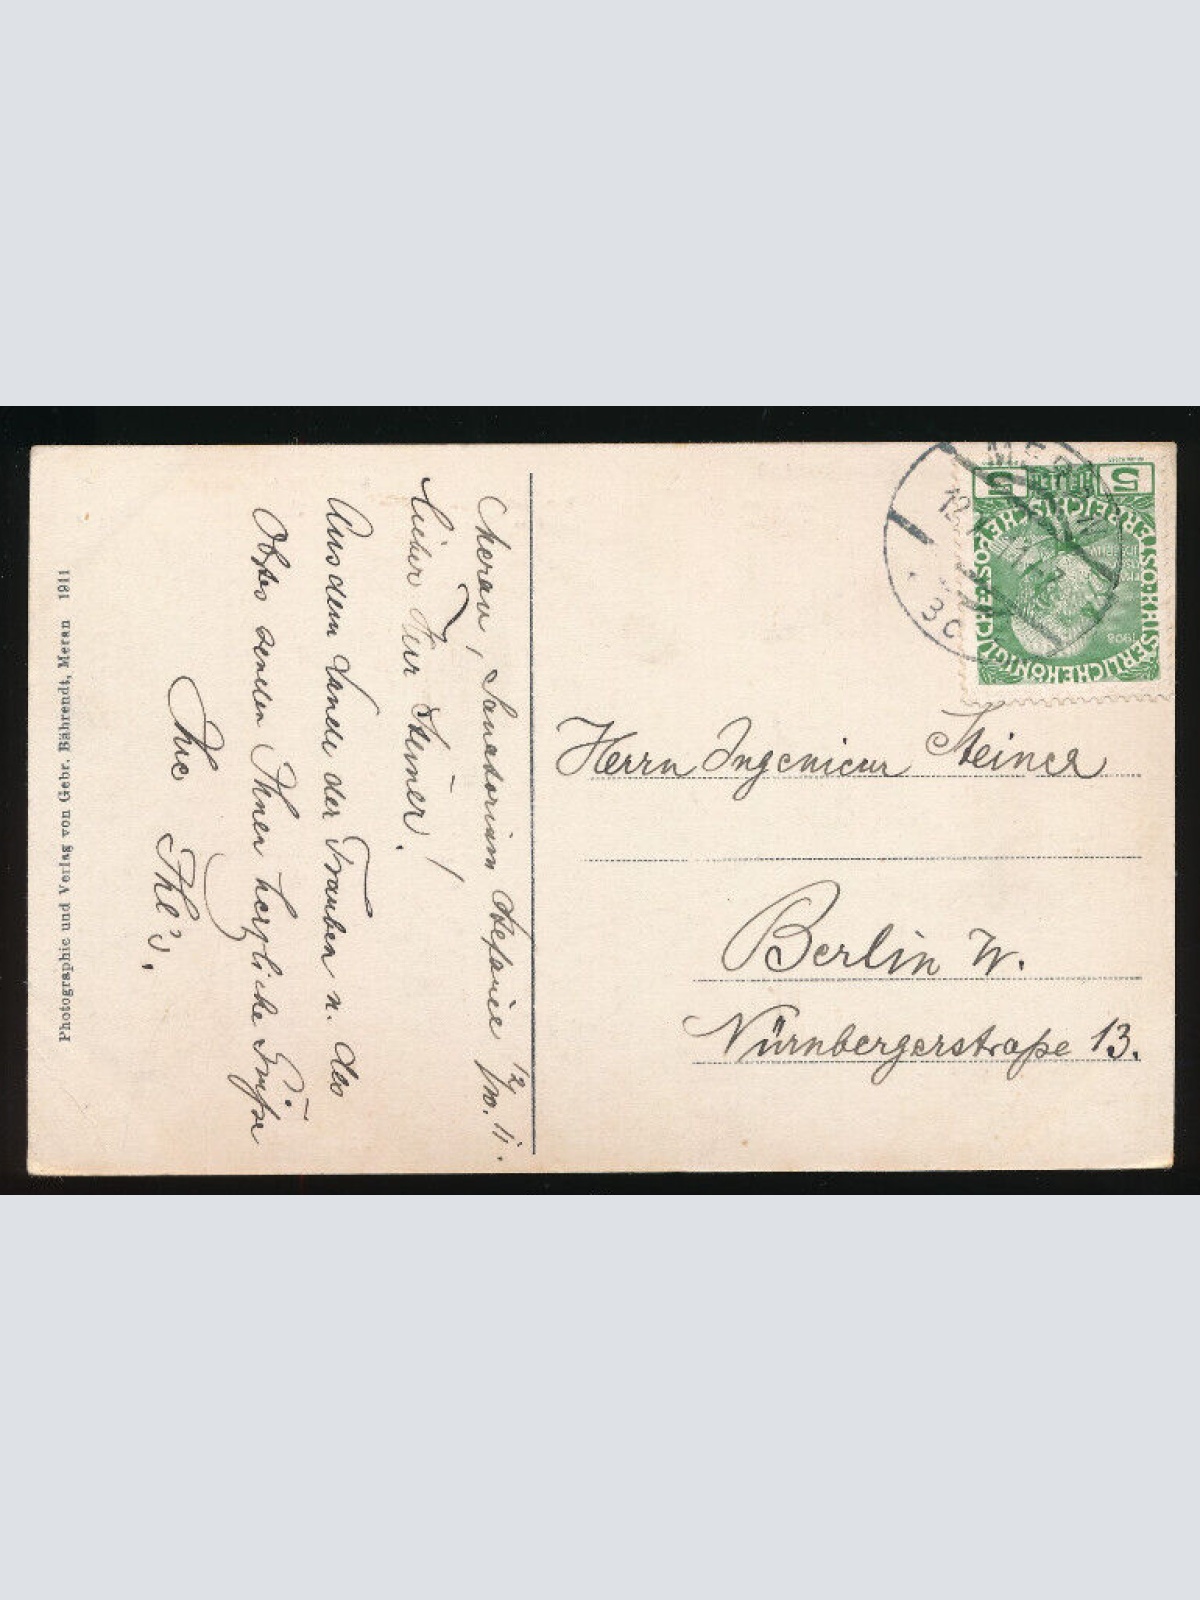 Meran, Sanatorium Stefanie 12/10. 11.
Lieber Herr Steiner!
Aus dem Lande der Trauben u. des
Obstes senden Ihnen herzliche Grüße
Ihre Ihl's.
Herrn Ingenieur Steiner
Berlin W.
Nürnbergerstraße 13.
Photographie und Verlag von Gebr. Bährendt, Meran 1911
5 HELLER 5
KAISERLICHE KÖNIGLICHE ÖSTERREICHISCHE POST
1908
MERAN
3c